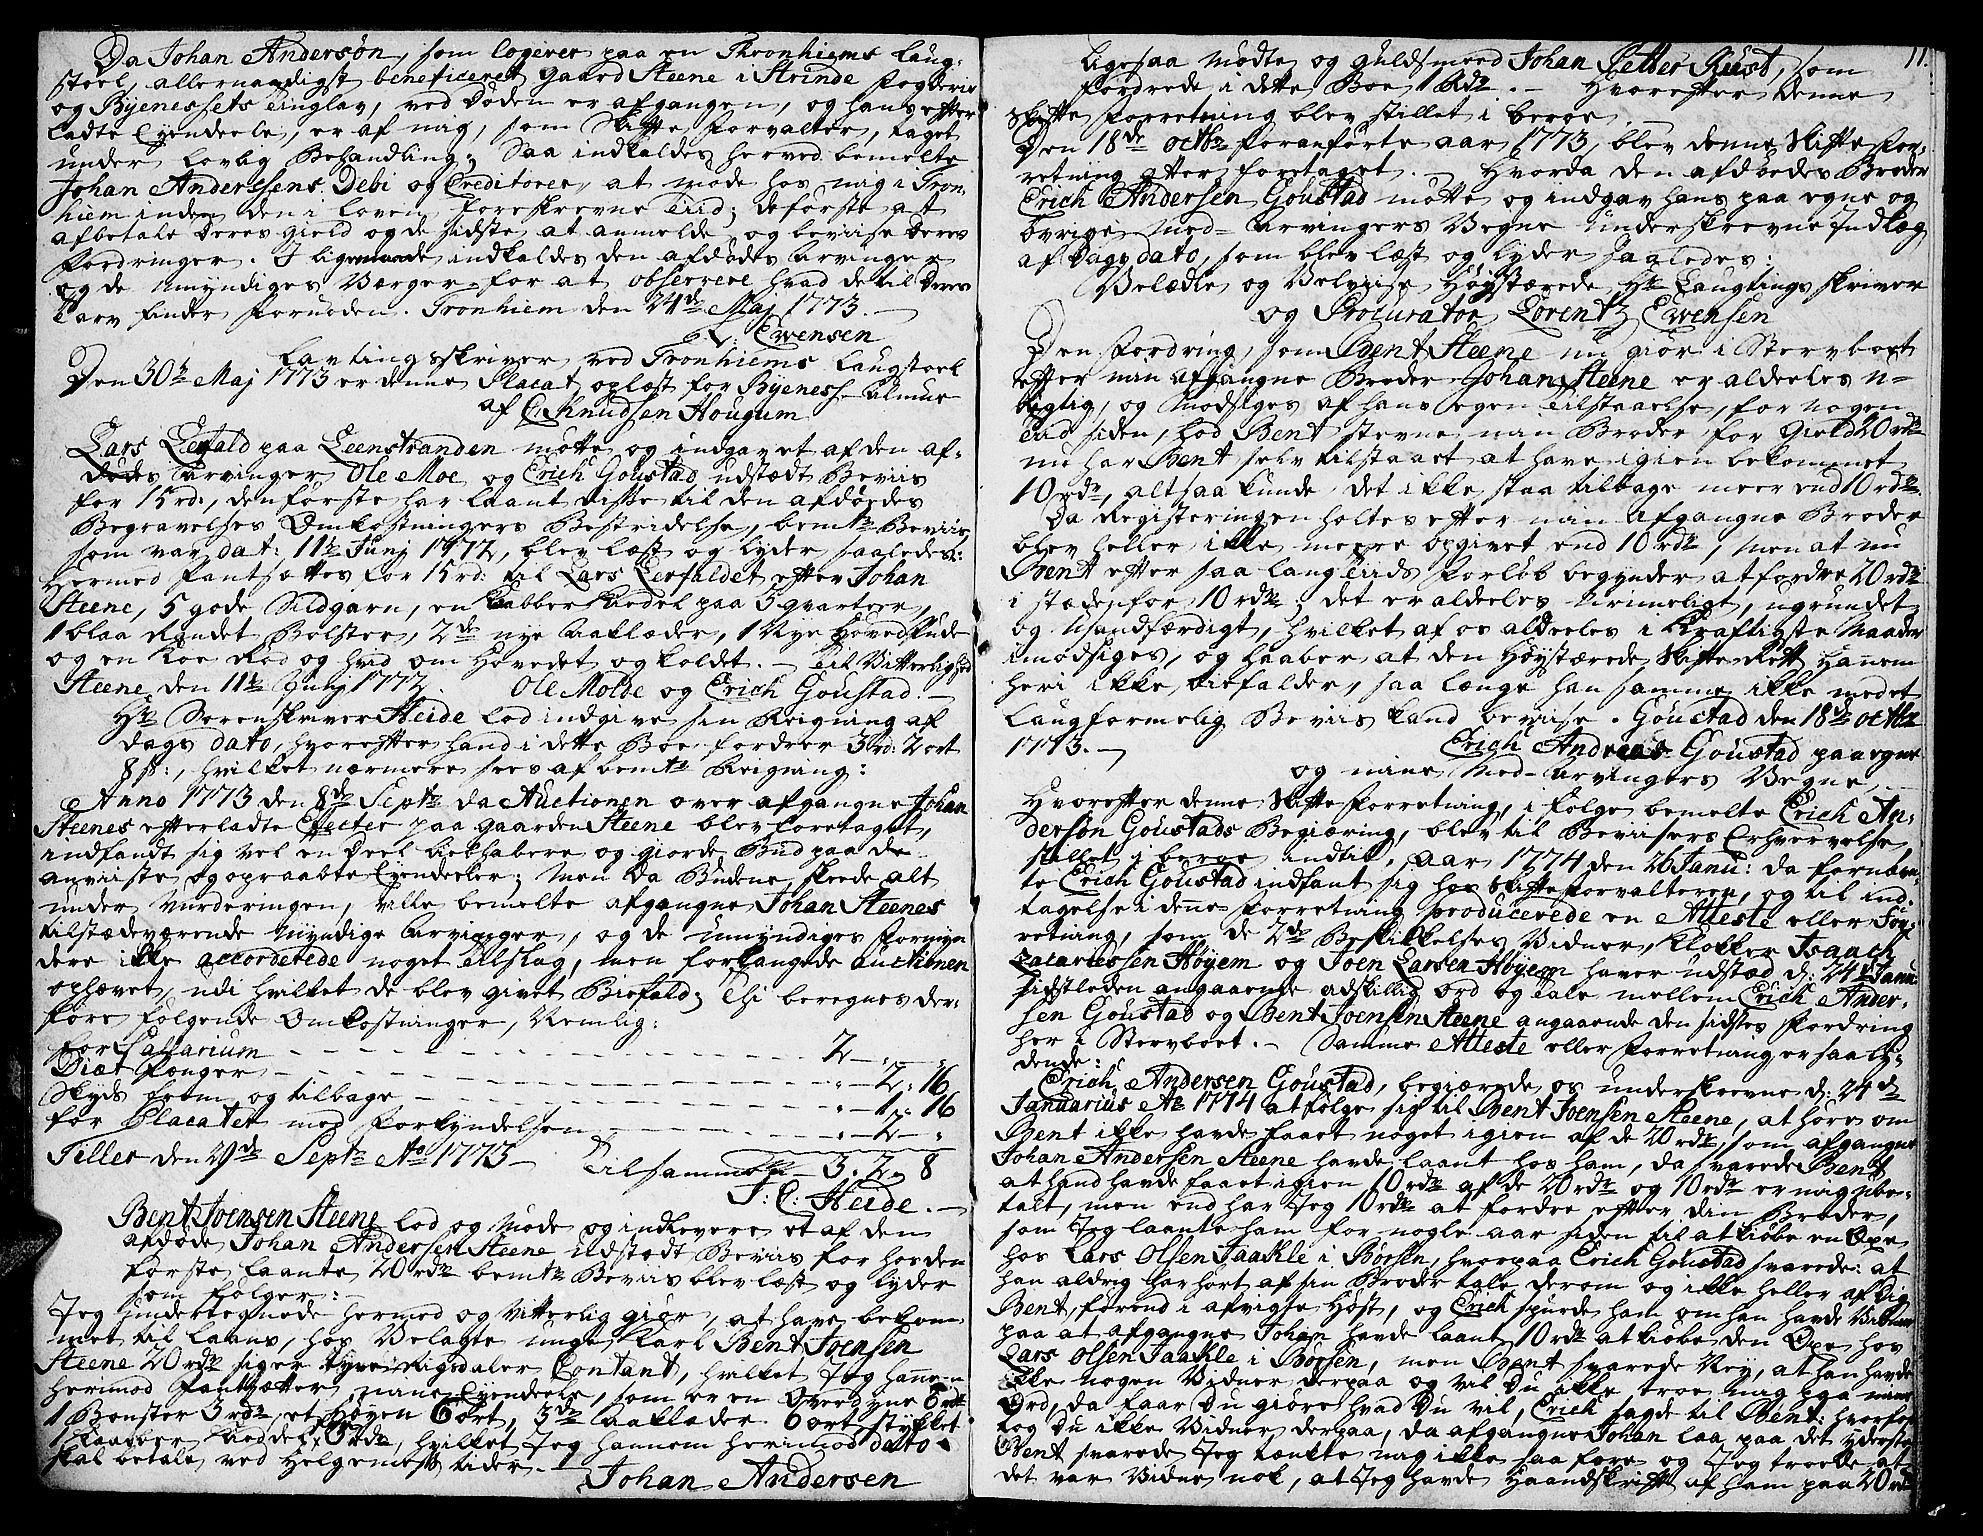 Da Johan Andersøn, som logerer paa en Thronhiems laug-
stoel, allernaadigst beneficeret gaard Steene i Strinde fogderie
og Byenessets tinglav, ved døden er afgangen, og hans efter
ladte Eyendeele, er af mig, som Skifte forvalter, taget
under lovlig Behandling; Saa indkaldes herved bemelte
Johan Anderssens Debi og Creditorer, at møde hos mig i Tron-
hiem inden den i loven foreskrevne tiid; de første at
afbetale deres gield og de sidste at anmelde og beviise deres
fordringer. I ligemaade indkaldes den afdødes arvinger
og de umyndiges Værger for at observere hvad de til deres
tarv finder fornøden. Tronhiem den 24de Maj 1773.
L: Ewensen
Lavtingsskriver ved Tronhiems laugstoel
Den 30te Maj 1773 er denne Placat oplæst for Byeness Almue
af C: Knudsen Hougum
Lars Leefald paa Leenstranden møtte og indgav et af den af-
dødes arvinger Ole Moe og Erich Goustad udstædt Beviis
for 15 rd:, den første har laant disse til den afdødes
Begravelses Omkostningers Bestridelse, bemte Beviis
som var dat: 11te Junj 1772, blev læst og lyder saaledes:
Hermed Pantsættes for 15 rd: til Lars Leefaldet efter Johan
Steene, 5 gode Sildgarn, en Kabber Kiedel paa 3 qvarteer,
1 blaa Randet Bolster, 2de nye Aaklæder, 1 Nye Hovedpude
og en Koe Rød og hvid om Hovedet og koldet. Til Vitterlighed
Steene den 11te Junj 1772. Ole Molde og Erich Goustad.
Hr Sorenskriver Heide lod indgive sin Reigning af
dags dato, hvorefter hand i dette Boe fordrer 3 rd: 2 ort
8 s:, hvilket nærmere sees af bemte Reigning:
Anno 1773 den 8de Septr da Auctionen over afgangne Johan
Steenes efterladte Effecter paa gaarden Steene blev foretaget,
indfandt sig vel en deel liebhabere og giorde Bud paa de
anviiste og opraabte Eyendeeler; Men da Budene skeede alt
under Vurderingen, ville bemelte afgangne Johan Steenes
tilstædeværende Myndige Arvinger, og de umyndiges formyn
dere ikke accorderede noget tilslag, men forlangede auctionen
ophævet, udi hvilket de blev givet Biefald; Thi beregnes der-
fore følgende Omkostninger, Nemlig:
for Sallarium - - - 2 - " - "
Diæt Penger - - - " - 2 " 16
Skyds frem og tilbage - - - " - 1 " 16
for Placatet med forkyndelsen - - - " - 2 - "
Tiller den 29de Septr Ao 1773 Tilsammen 3. 2. 8
J: C: Heide.
Bent Joensen Steene lod og møde og indlevere et af den
afdøde Johan Andersen Steene udstædt Beviis for hos den
første laante 20 rdr bemte Beviis blev læst og lyder
som følger:
Jeg undertegnede hermed og Vitterlig giør, at have bekom-
met til laans, hos Velagte unge Karl Bent Joensen
Steene 20 rdr siger tyve Rigsdaler Contant, hvilket Jeg hannem
hermed Pantsætter, mine Eyendeele, som er en Overdyne 6 rdr
1 Benster 3 rdr, et Høyen 6 ort, 3de Aaklæder 6 ort stykket
1 Kaabber Kieddel 6 rdr, hvilket Jeg hannem herimod dato
skal betale ved Helgemess tider.
Johan Andersen
11.
Ligesaa mødte og guldsmeed Johan Petter Rust, som
fordrede i dette Boe 1 Rdr. Hvorefter denne
Skifte forretning blev stillet i beroe.
Den 18de octbr foranførte aar 1773, blev denne Skifte for-
retning etter foretaget. Hvorda den afdødes Broder
Erich Andersen Goustad møtte og indgav hans paa egne og
øvrige Med-Arvingers Vegne underskrevne Indlæg
af Dags dato, som blev læst og lyder saaledes:
Velædle og Velviise Høystærede Hr Laugtings skriver
og Procurator Lorentz Ewensen
Den fordring, som Bent Steene nu giør i Stervboet
efter min afgangne Broder Johan Steene er aldeeles u-
rigtig, og Modsiges af hans egen tilstaaelse, for nogen
tiid siden, lod Bent stevne min Broder for Gield 20 rdr
nu har Bent selv tilstaaet at have igien bekommet
10 rdr, altsaa kunde det ikke staa tilbage meer end 10 rdr
Da Registeringen holtes efter min Afgangne Broder
blev heller ikke meere opgivet end 10 rdr, men at nu
Bent efter saa lang tiids forløb begynder at fordre 20 rdr
i stæden for 10 rdr; det er aldeeles urimeligt, ugrundet
og Usandfærdigt, hvilket af os aldeeles i Kraftigste Maader
imodsiges, og haaber at den Høystærede Skifte Rett Hannem
heri ikke biefalder, saa længe han samme ikke medet
laugformelig Beviis kand beviise. Goustad den 18de octbr
1773. Erich Andreas Goustad paa egne
og mine Med-Arvingers Vegne
Hvorefter denne Skifte forretning, i følge bemelte Erich An-
dersøn Goustads Begiæring, blev til Bevisers Erhvervelse
stillet i beroe indtil, Aar 1774 den 26 Janu: da fornævn-
te Erich Goustad indfant sig hos Skifteforvalteren, og til ind-
tagelse i denne forretning producerede en Atteste eller for-
retning, som de 2de Beskikkelses Vidner, Klokker Isaach
Zacariassen Høyem og Joen Larsen Høyem haver udstæd d: 24 Janu
sidstleden angaaende adskillig ord og tale mellem Erich Ander-
sen Goustad og Bent Joensen Steene angaaende den sidstes fordring
her i Stervboet. Samme Atteste eller forretning er saa ly-
dende:
Erich Andersen Goustad, begiærede os underskrevne d: 24 d
Januarius Ao 1774 at følge sig til Bent Joensen Steene, at høre om
Bent ikke havde faaet noget igien af de 20 rdr, som afgangne
Johan Andersen Steene havde laant hos ham, da svarede Bent
at hand havde faaet igien 10 rdr af de 20 rdr og 10 rdr er mig ube-
talt, men end har Jeg 10 rdr at fordre efter din Broder,
som Jeg laante ham for nogle aar siden til at kiøbe en Oxe
hos Lars Olsen Saakle i Børsen, hvorpaa Erich Goustad svarede: at
han aldrig har hørt af sin Broder tale derom og ikke heller af dig
Bent, førend i afvigte Høst, og Erich spurde ham om han havde Vidner
paa at afgangne Johan havde laant 10 rdr at kiøbe den Oxe hos
Lars Olsen Saakle i Børsen, men Bent svarede Ney, at han havde
ikke nogen Vidner derpaa og vil Du ikke troe mig paa mine
Ord, da faar Du giøre hvad Du vil, Erich sagde til Bent: hvorfor
tog du ikke Vidner derpaa, da afgangne Johan laa paa det yderste
Bent svarede Jeg tænkte mig ikke saa fore og Jeg troede at
det var Vidne nok, at Jeg havde Haandskrift af ham paa 20 rdr